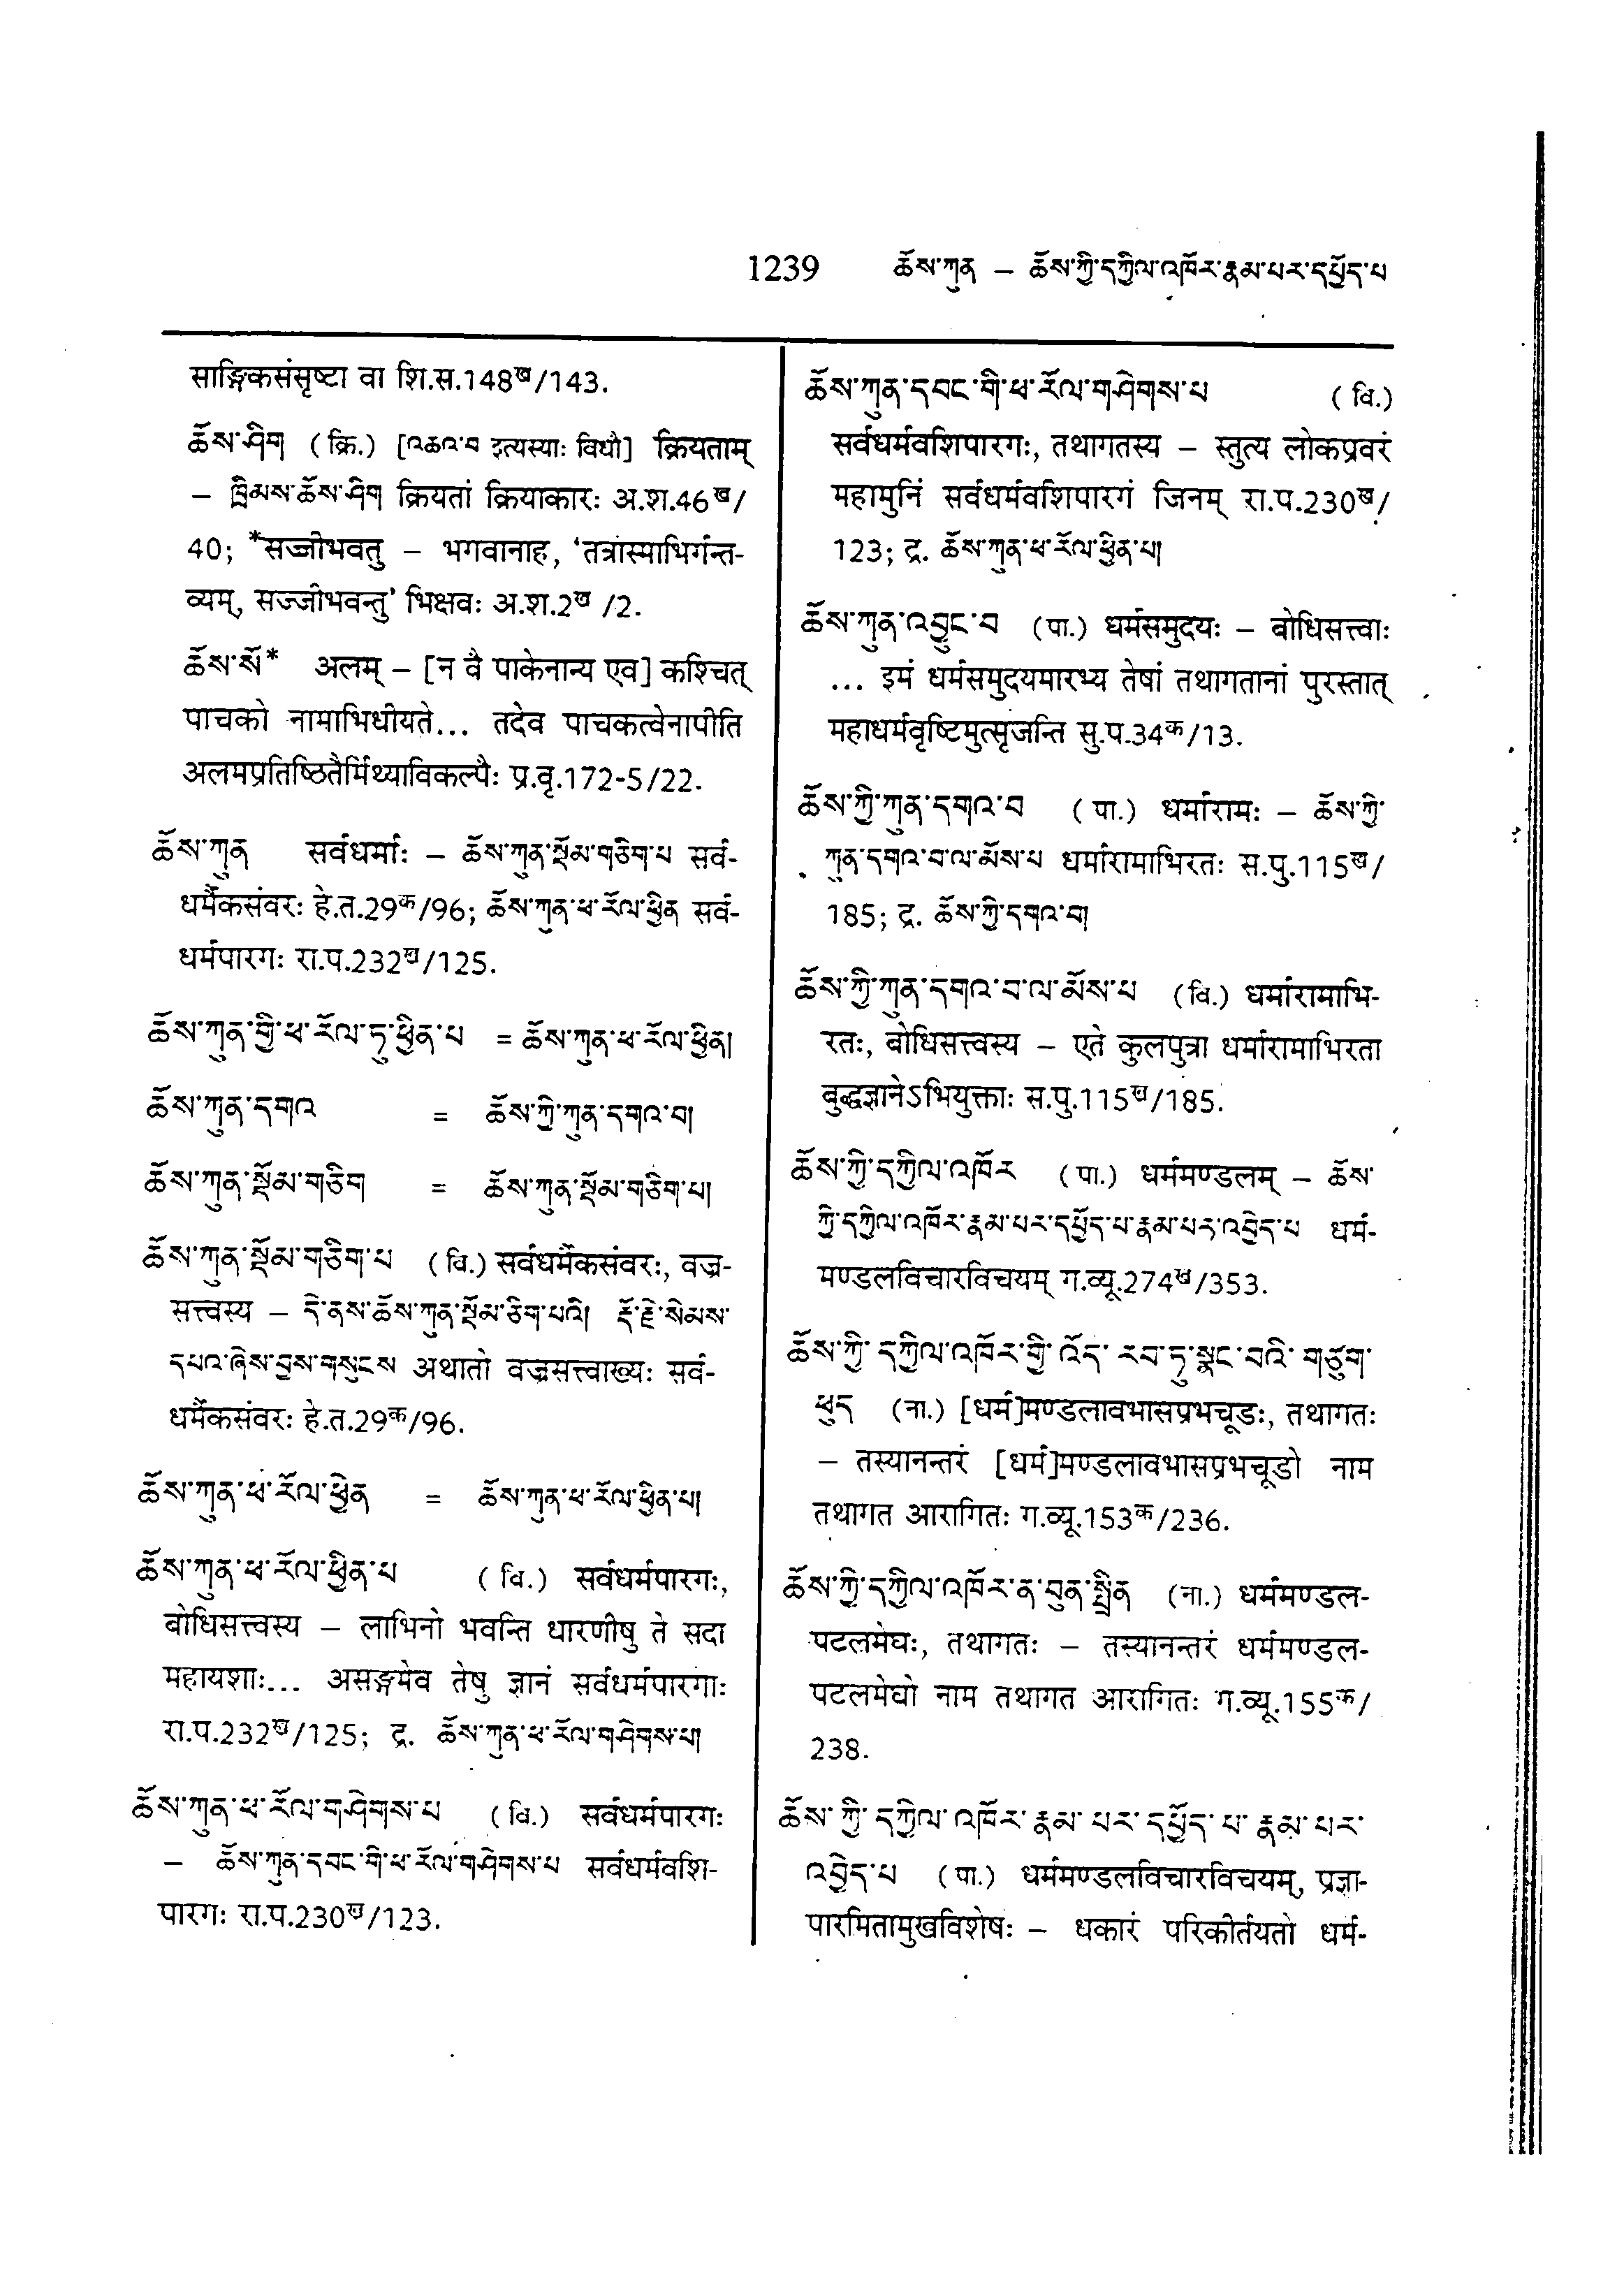 1239 ཆོས་ཀུན – ཆོས་ཀྱི་དཀྱིལ་འཁོར་རྣམ་པར་དཔྱོད་པ
साङ्घिकसंसृष्टा वा शि.स.148ख/143.
ཆོས་ཤིག (क्रि.) [འཆའ་བ इत्यस्याः विधौ] क्रियताम्
– ཁྲིམས་ཆོས་ཤིག क्रियतां क्रियाकारः अ.श.46ख/
40; *सज्जीभवतु – भगवानाह, ‘तत्रास्माभिर्गन्त-
व्यम्, सज्जीभवन्तु’ भिक्षवः अ.श.2ख /2.
ཆོས་སོ* अलम् – [न वै पाकेनान्य एव] कश्चित्
पाचको नामाभिधीयते... तदेव पाचकत्वेनापीति
अलमप्रतिष्ठितैर्मिथ्याविकल्पैः प्र.वृ.172-5/22.
ཆོས་ཀུན सर्वधर्माः – ཆོས་ཀུན་སྡོམ་གཅིག་པ सर्व-
धर्मैकसंवरः हे.त.29क/96; ཆོས་ཀུན་ཕ་རོལ་ཕྱིན सर्व-
धर्मपारगः रा.प.232ख/125.
ཆོས་ཀུན་གྱི་ཕ་རོལ་ཏུ་ཕྱིན་པ = ཆོས་ཀུན་ཕ་རོལ་ཕྱིན།
ཆོས་ཀུན་དགའ = ཆོས་ཀྱི་ཀུན་དགའ་བ།
ཆོས་ཀུན་སྡོམ་གཅིག = ཆོས་ཀུན་སྡོམ་གཅིག་པ།
ཆོས་ཀུན་སྡོམ་གཅིག་པ (वि.) सर्वधर्मैकसंवरः, वज्र-
सत्त्वस्य – དེ་ནས་ཆོས་ཀུན་སྡོམ་ཅིག་པའི། རྡོ་རྗེ་སེམས་
དཔའ་ཞེས་བྱས་གསུངས अथातो वज्रसत्त्वाख्यः सर्व-
धर्मैकसंवरः हे.त.29क/96.
ཆོས་ཀུན་ཕ་རོལ་ཕྱིན = ཆོས་ཀུན་ཕ་རོལ་ཕྱིན་པ།
ཆོས་ཀུན་ཕ་རོལ་ཕྱིན་པ (वि.) सर्वधर्मपारगः,
बोधिसत्त्वस्य – लाभिनो भवन्ति धारणीषु ते सदा
महायशाः... असङ्गमेव तेषु ज्ञानं सर्वधर्मपारगाः
रा.प.232ख/125; द्र. ཆོས་ཀུན་ཕ་རོལ་གཤེགས་པ།
ཆོས་ཀུན་ཕ་རོལ་གཤེགས་པ (वि.) सर्वधर्मपारगः
– ཆོས་ཀུན་དབང་གི་ཕ་རོལ་གཤེགས་པ सर्वधर्मवशि-
पारगः रा.प.230ख/123.
ཆོས་ཀུན་དབང་གི་ཕ་རོལ་གཤེགས་པ (वि.)
सर्वधर्मवशिपारगः, तथागतस्य – स्तुत्य लोकप्रवरं
महामुनिं सर्वधर्मवशिपारगं जिनम् रा.प.230ख/
123; द्र. ཆོས་ཀུན་ཕ་རོལ་ཕྱིན་པ།
ཆོས་ཀུན་འབྱུང་བ (पा.) धर्मसमुदयः – बोधिसत्त्वाः
... इमं धर्मसमुदयमारभ्य तेषां तथागतानां पुरस्तात्
महाधर्मवृष्टिमुत्सृजन्ति सु.प.34क/13.
ཆོས་ཀྱི་ཀུན་དགའ་བ (पा.) धर्मारामः – ཆོས་ཀྱི་
ཀུན་དགའ་བ་ལ་མོས་པ धर्मारामाभिरतः स.पु.115ख/
185; द्र. ཆོས་ཀྱི་དགའ་བ།
ཆོས་ཀྱི་ཀུན་དགའ་བ་ལ་མོས་པ (वि.) धर्मारामाभि-
रतः, बोधिसत्त्वस्य – एते कुलपुत्रा धर्मारामाभिरता
बुद्धज्ञानेऽभियुक्ताः स.पु.115ख/185.
ཆོས་ཀྱི་དཀྱིལ་འཁོར (पा.) धर्ममण्डलम् – ཆོས་
ཀྱི་དཀྱིལ་འཁོར་རྣམ་པར་དཔྱོད་པ་རྣམ་པར་འབྱེད་པ धर्म-
मण्डलविचारविचयम् ग.व्यू.274ख/353.
ཆོས་ཀྱི་ དཀྱིལ་འཁོར་གྱི་ འོད་ རབ་ཏུ་སྣང་བའི་ གཙུག་
ཕུད (ना.) [धर्म]मण्डलावभासप्रभचूडः, तथागतः
– तस्यानन्तरं [धर्म]मण्डलावभासप्रभचूडो नाम
तथागत आरागितः ग.व्यू.153क/236.
ཆོས་ཀྱི་དཀྱིལ་འཁོར་ན་བུན་སྤྲིན (ना.) धर्ममण्डल-
पटलमेघः, तथागतः – तस्यानन्तरं धर्ममण्डल-
पटलमेघो नाम तथागत आरागितः ग.व्यू.155क/
238.
ཆོས་ ཀྱི་ དཀྱིལ་ འཁོར་ རྣམ་ པར་ དཔྱོད་ པ་ རྣམ་ པར་
འབྱེད་པ (पा.) धर्ममण्डलविचारविचयम्, प्रज्ञा-
पारमितामुखविशेषः – धकारं परिकीर्तयतो धर्म-